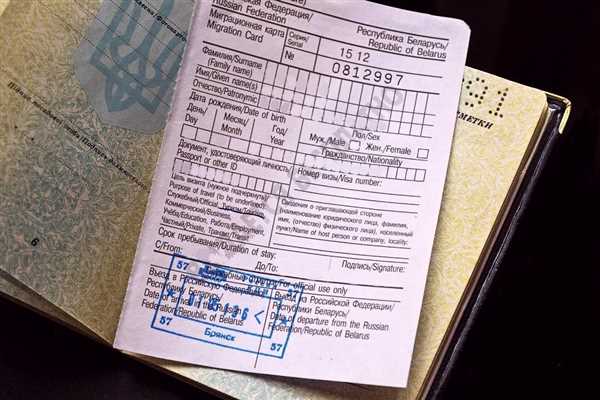 Российская Федерация/
Russian Federation
Республика Беларусь/
Republic of Belarus
Миграционная карта
Migration Card
Серия/
Serial
15 12
№
0812997
Фамилия/Surname
(Family name)
Имя/Given name(s)
Отчество/Patronymic
Дата рождения/Date of birth
День/
Day
Месяц/
Month
Год/
Year
Пол/Sex
Муж./Male
Жен./Female
Гражданство/Nationality
Документ, удостоверяющий личность/
Passport or other ID
Номер визы/Visa number:
Цель визита (нужное подчеркнуть)/
Purpose of travel (to be underlined):
Служебный/Official, Туризм/Tourism,
Коммерческий/Business,
Учёба/Education, Работа/Employment,
Частный/Private, Транзит/Transit
Сведения о приглашающей стороне
(наименование юридического лица, фамилия,
имя, (отчество) физического лица), населенный
пункт/Name of host person or company, locality:
Срок пребывания/Duration of stay:
С/From:
До/To:
Подпись/Signature:
Служебные отметки/For official use only
Въезд в Российскую Федерацию/
Республику Беларусь/
Date of arrival in the Russian
Federation/Republic of Belarus
Выезд из Российской Федерации/
Республики Беларусь/
Date of departure from the Russian
Federation/Republic of Belarus
57
57
57
Брянск
ОТМЕТКИ
6